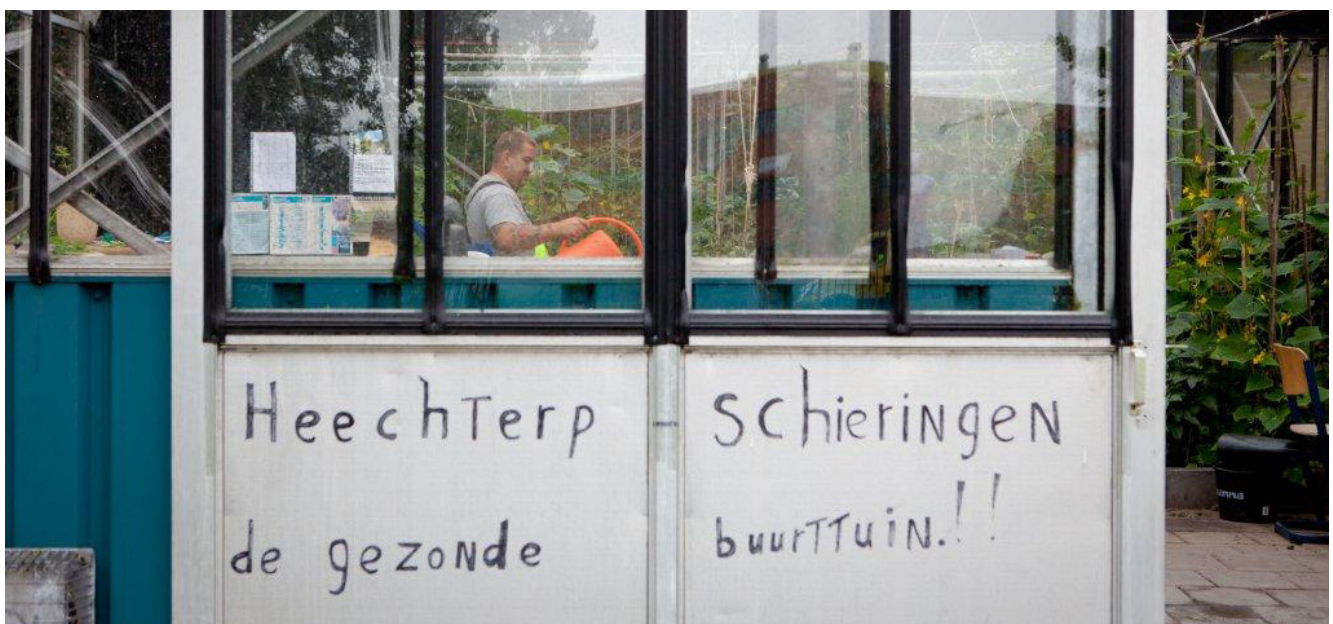 HeechTerp SchieriNgeN
de gezoNde buurTTuiN.!!